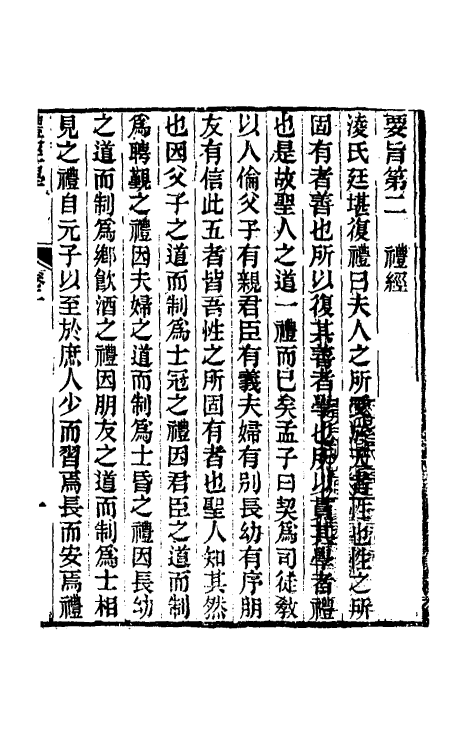 要旨第二　禮經
淩氏廷堪復禮曰夫人之所受於天者性也性之所
固有者善也所以復其善者學也所以貫其學者禮
也是故聖人之道一禮而已矣孟子曰契爲司徒敎
以人倫父子有親君臣有義夫婦有別長幼有序朋
友有信此五者皆吾性之所固有者也聖人知其然
也因父子之道而制爲士冠之禮因君臣之道而制
爲聘覲之禮因夫婦之道而制爲士昏之禮因長幼
之道而制爲鄉飮酒之禮因朋友之道而制爲士相
見之禮自元子以至於庶人少而習焉長而安焉禮
禮經學　卷一　一